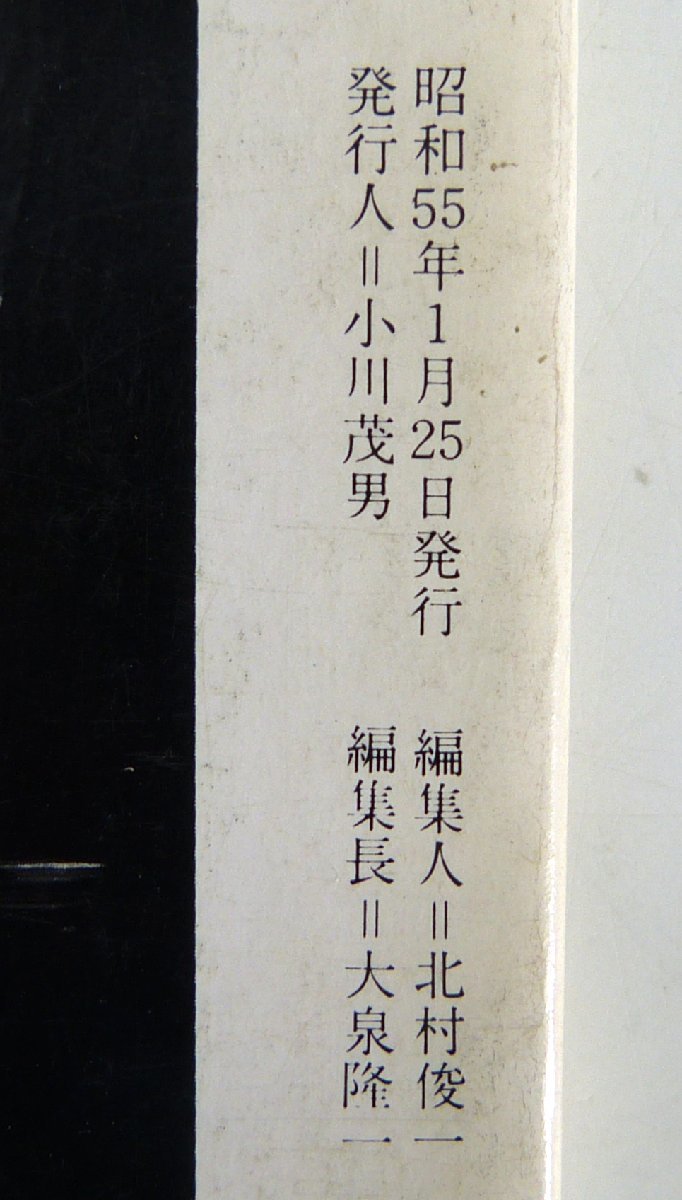 昭和55年1月25日発行　編集人＝北村俊一
発行人＝小川茂男　編集長＝大泉隆一